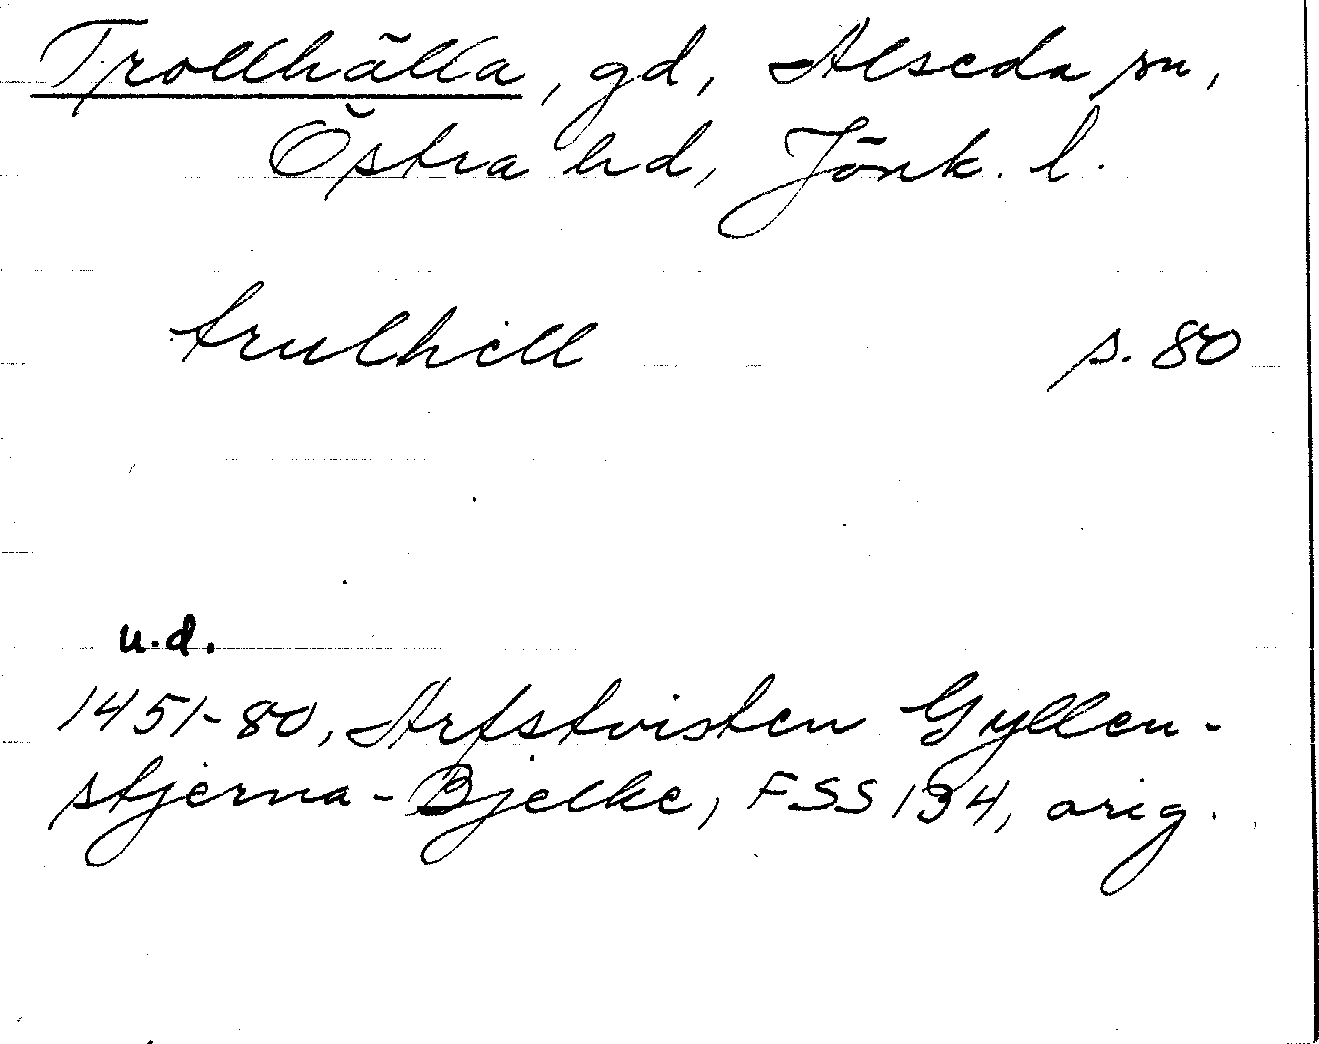 Trollhälla, gd, Alseda sn,
Östra hd, Jönk. l.
trulhell s. 80
u.d.
1451-80, Arfstvisten Gyllen-
stjerna-Bjelke, FSS 134, orig.